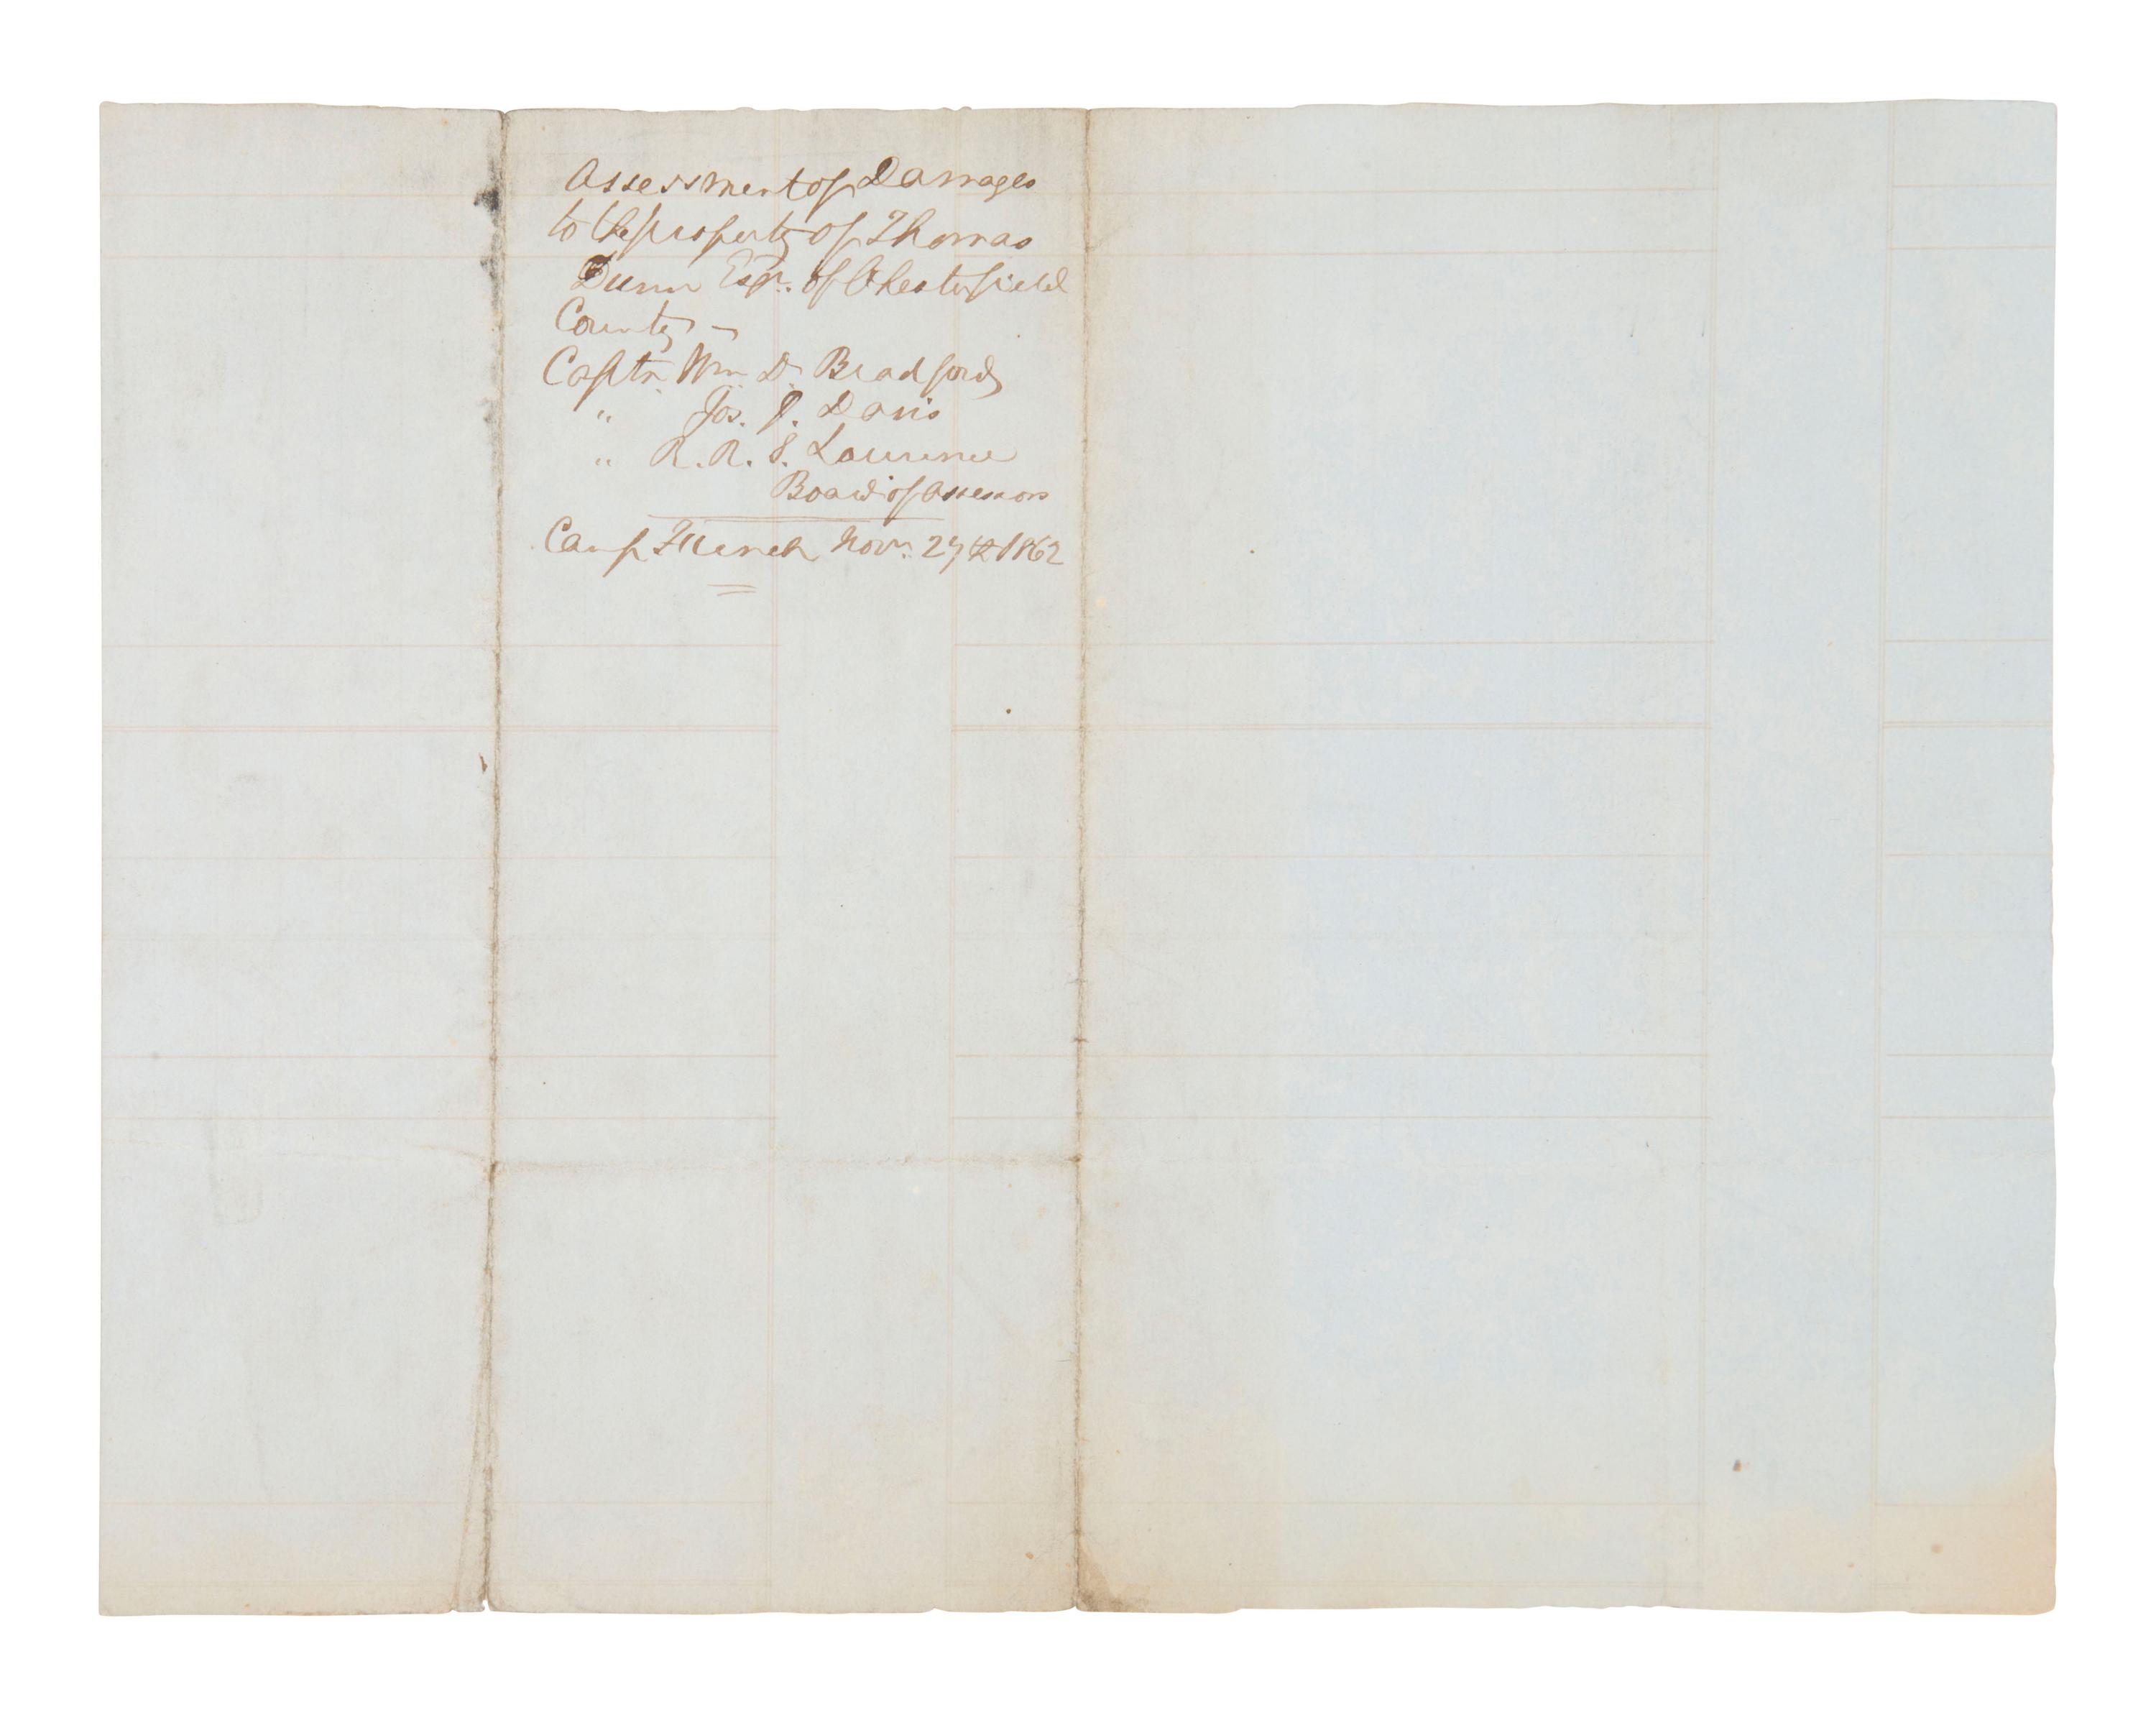 Assessment of Damages
to the property of Thomas
Dunn Esqr. of Chesterfield
County –
Captn. Wm. D. Bradford
" Jos. J. Davis
" R. R. S. Lawrence
Board of Assessors
Camp French Novr. 27th 1862